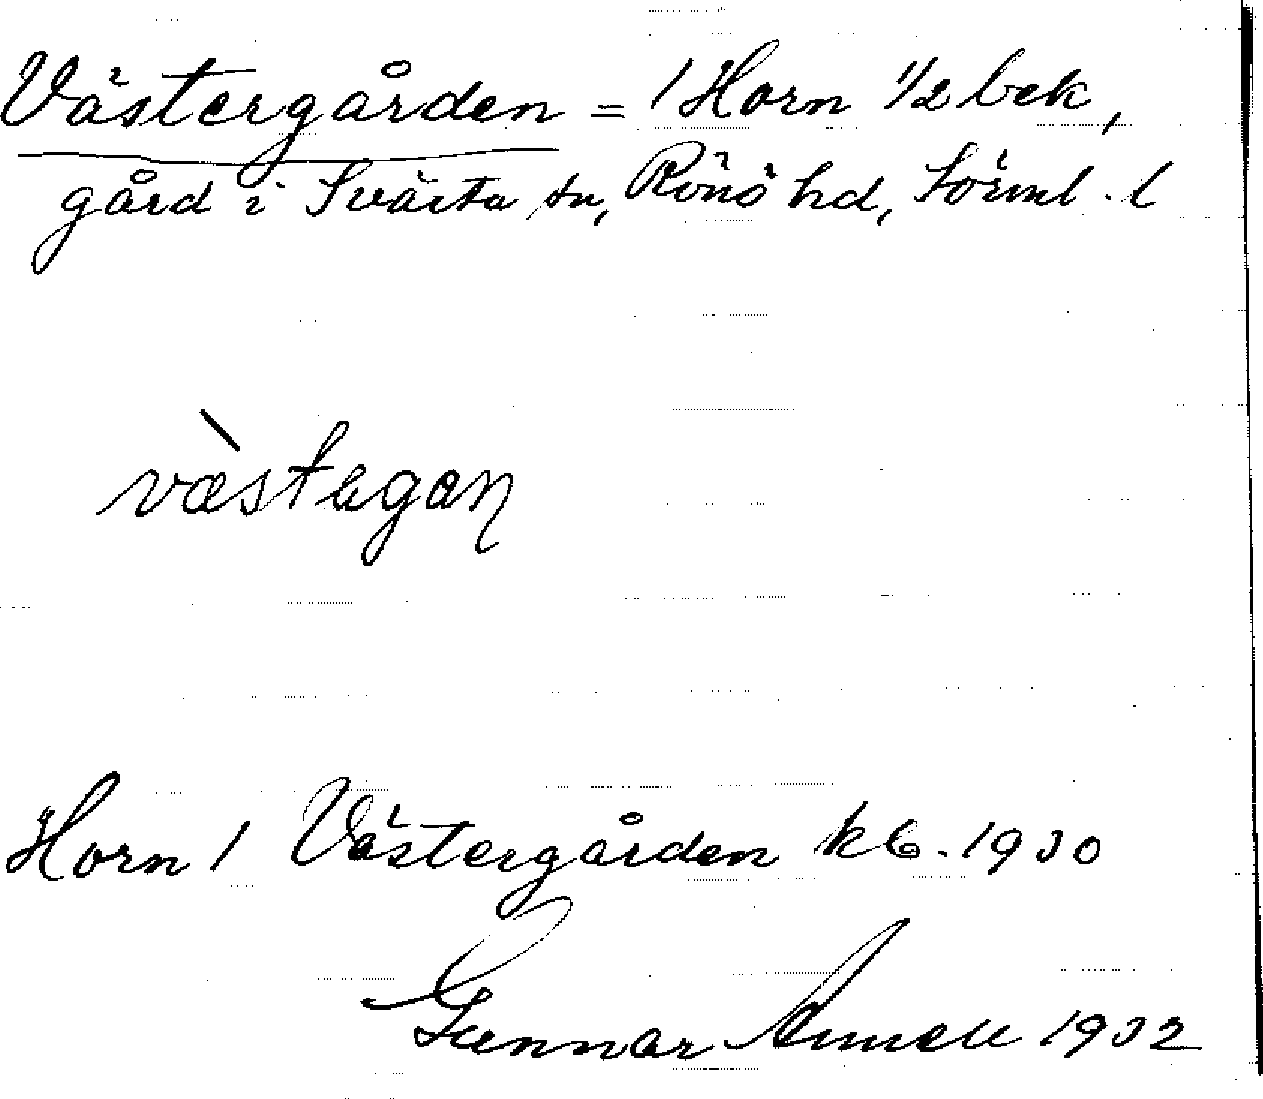 Västergården = 1 Horn 1/2 bek,
gård i Svärta sn, Rönö hd, Sörml. l
væstagaɳ
Horn 1 Västergården kb. 1930
Gunnar 1932